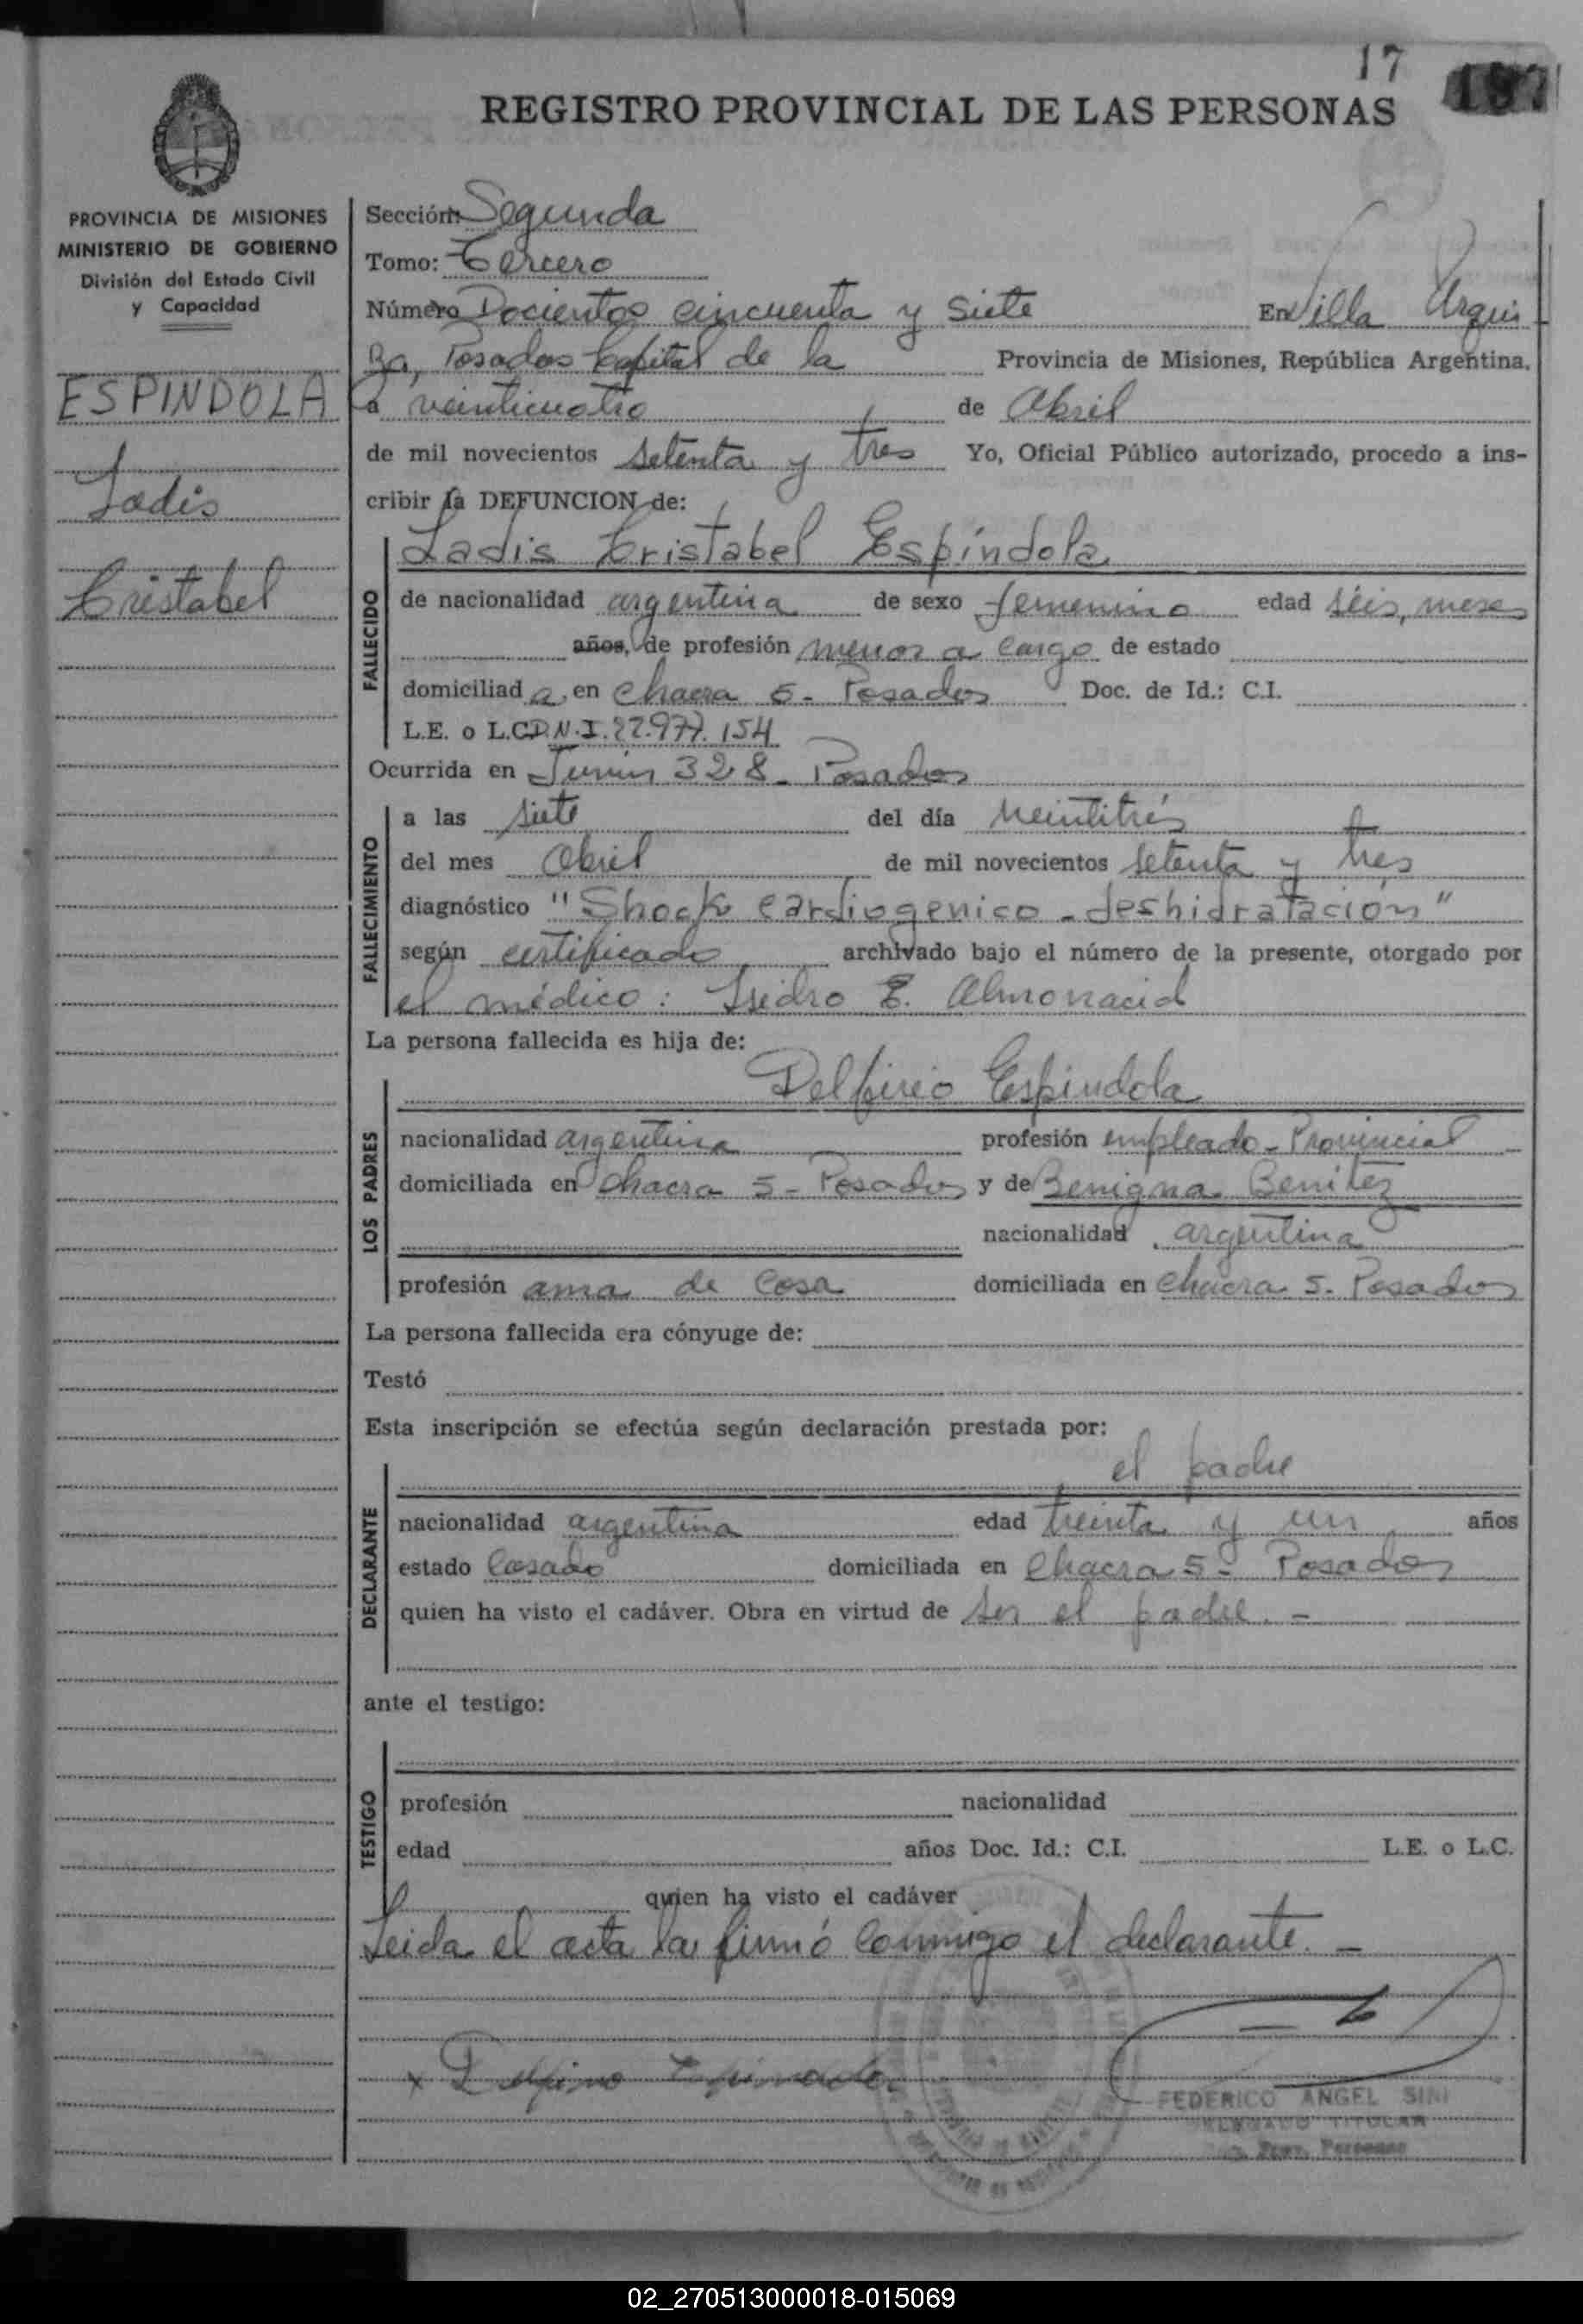 17
187
REGISTRO PROVINCIAL DE LAS PERSONAS
PROVINCIA DE MISIONES
MINISTERIO DE GOBIERNO
División del Estado Civil
y Capacidad
ESPINDOLA
Ladis
Cristabel
Sección: Segunda
Tomo: Tercero
Número Docientos cincuenta y siete En Villa Urqui
za, Posadas Capital de la Provincia de Misiones, República Argentina,
a veinticuatro de Abril
de mil novecientos setenta y tres Yo, Oficial Público autorizado, procedo a ins-
cribir la DEFUNCION de:
FALLECIDO
Ladis Cristabel Espíndola
de nacionalidad argentina de sexo femenino edad seis, meses
años, de profesión menor a cargo de estado
domiciliad a en Chacra 5 - Posadas Doc. de Id.: C.I.
L.E. o L.C. D.N.I. 22.977.154
Ocurrida en Junín 328 - Posadas
FALLECIMIENTO
a las siete del día veintitrés
del mes Abril de mil novecientos setenta y tres
diagnóstico "Shock cardiogenico - deshidratación"
según certificado archivado bajo el número de la presente, otorgado por
el médico: Isidro E. Almonacid
La persona fallecida es hija de:
LOS PADRES
Delfirio Espindola
nacionalidad argentina profesión empleado - Provincial
domiciliada en Chacra 5 - Posadas y de Benigna Benitez
nacionalidad argentina
profesión ama de casa domiciliada en Chacra 5. Posadas
La persona fallecida era cónyuge de:
Testó
Esta inscripción se efectúa según declaración prestada por:
DECLARANTE
el padre
nacionalidad argentina edad treinta y un años
estado casado domiciliada en Chacra 5 - Posadas
quien ha visto el cadáver. Obra en virtud de ser el padre. -
ante el testigo:
TESTIGO
profesión nacionalidad
edad años Doc. Id.: C.I. L.E. o L.C.
quien ha visto el cadáver
Leida el acta la firmó conmigo el declarante. -
x Delfino Espindola
FEDERICO ANGEL SINI
DELEGADO TITULAR
Prov. Personas
02_270513000018-015069